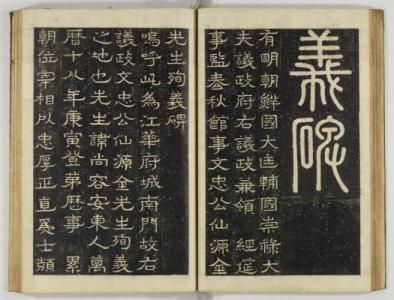 義碑
有明朝鮮國大匡輔國崇祿大
夫議政府右議政兼領 經筵
事監春秋館事文忠公仙源金
先生殉義碑
嗚呼此為江華府城南門故右
議政文忠公仙源金先生殉義
之地也先生諱尚容安東人萬
曆十八年庚寅登第歷事 累
朝位宰相以忠厚正直爲士類